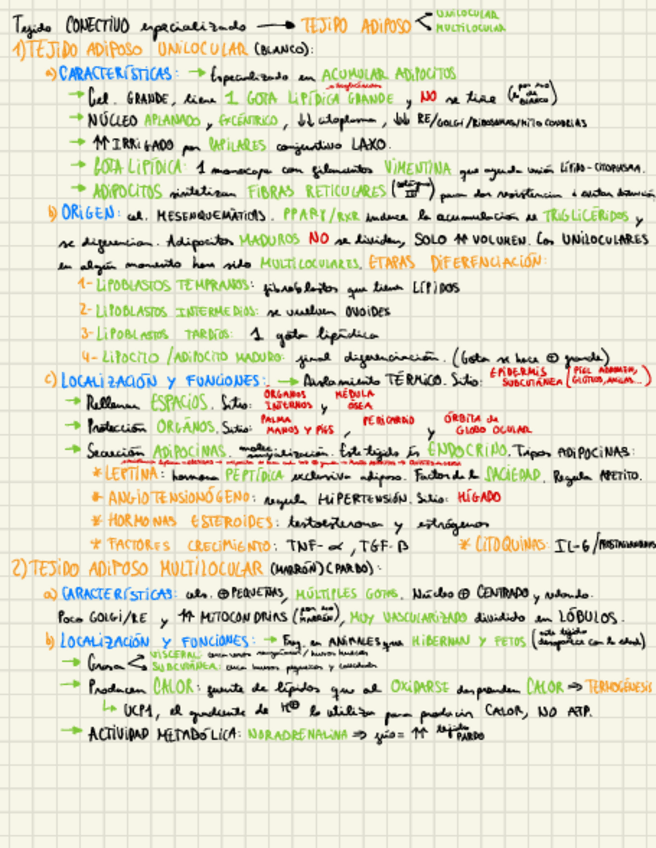 Tejido CONECTIVO especializado → TEJIDO ADIPOSO < UNILOCULAR
MULTILOCULAR
1) TEJIDO ADIPOSO UNILOCULAR (BLANCO):
a) CARACTERÍSTICAS: → Especializado en ACUMULAR ADIPOCITOS
→ Cel. GRANDE, tiene 1 GOTA LIPÍDICA GRANDE y NO se tiñe (por eso es BLANCO)
→ NÚCLEO APLANADO y EXCÉNTRICO, ↓↓ citoplasma, ↓↓ RE/GOLGI/RIBOSOMAS/MITOCONDRIAS
→ ↑↑ IRRIGADO por CAPILARES conjuntivo LAXO.
→ GOTA LIPÍDICA: 1 monocapa con filamentos VIMENTINA que ayuda unión LÍPIDO-CITOPLASMA.
→ ADIPOCITOS sintetizan FIBRAS RETICULARES (colágeno III) para dar resistencia
b) ORIGEN: cel. MESENQUEMÁTICAS. PPARγ/RXR induce la acumulación de TRIGLICÉRIDOS y
se diferencian. Adipocitos MADUROS NO se dividen, SOLO ↑↑ VOLUMEN. Los UNILOCULARES
en algún momento han sido MULTILOCULARES. ETAPAS DIFERENCIACIÓN:
1- LIPOBLASTOS TEMPRANOS: fibroblastos que tienen LÍPIDOS
2- LIPOBLASTOS INTERMEDIOS: se vuelven OVOIDES
3- LIPOBLASTOS TARDÍOS: 1 gota lipídica
4- LIPOCITO/ADIPOCITO MADURO: final diferenciación. (Gota se hace ⊕ grande)
c) LOCALIZACIÓN Y FUNCIONES: → Aislamiento TÉRMICO. Sitio: EPIDERMIS SUBCUTÁNEA (PIEL ABDOMEN, GLÚTEOS, AXILAS...)
→ Rellenan ESPACIOS. Sitio: ÓRGANOS INTERNOS y MÉDULA ÓSEA
→ Protección ÓRGANOS. Sitio: PALMA MANOS Y PIES, PERICARDIO y ÓRBITA de GLOBO OCULAR
→ Secreción ADIPOCINAS. molec. señalización. Este tejido es ENDOCRINO. Tipos ADIPOCINAS:
* LEPTINA: hormona PEPTÍDICA exclusiva adiposo. Factor de la SACIEDAD. Regula APETITO.
* ANGIOTENSIONÓGENO: regula HIPERTENSIÓN. Sitio: HÍGADO
* HORMONAS ESTEROIDES: testosterona y estrógenos
* FACTORES CRECIMIENTO: TNF-α, TGF-β * CITOQUINAS: IL-6/PROSTAGLANDINAS
2) TEJIDO ADIPOSO MULTILOCULAR (MARRÓN) (PARDO):
a) CARACTERÍSTICAS: cels. ⊕ PEQUEÑAS, MÚLTIPLES GOTAS. Núcleo ⊕ CENTRADO y redondo.
Poco GOLGI/RE y ↑↑ MITOCONDRIAS (por eso MARRÓN), MUY VASCULARIZADO dividido en LÓBULOS.
b) LOCALIZACIÓN Y FUNCIONES: → Hay en ANIMALES que HIBERNAN Y FETOS (este tejido desaparece con la edad)
→ Grasa < VISCERAL:
SUBCUTÁNEA:
→ Producen CALOR: fuente de lípidos que al OXIDARSE desprenden CALOR ⇒ TERMOGÉNESIS
↳ UCP1, el gradiente de H⊕ lo utiliza para producir CALOR, NO ATP.
→ ACTIVIDAD METABÓLICA: NORADRENALINA ⇒ frío = ↑↑ tejido PARDO